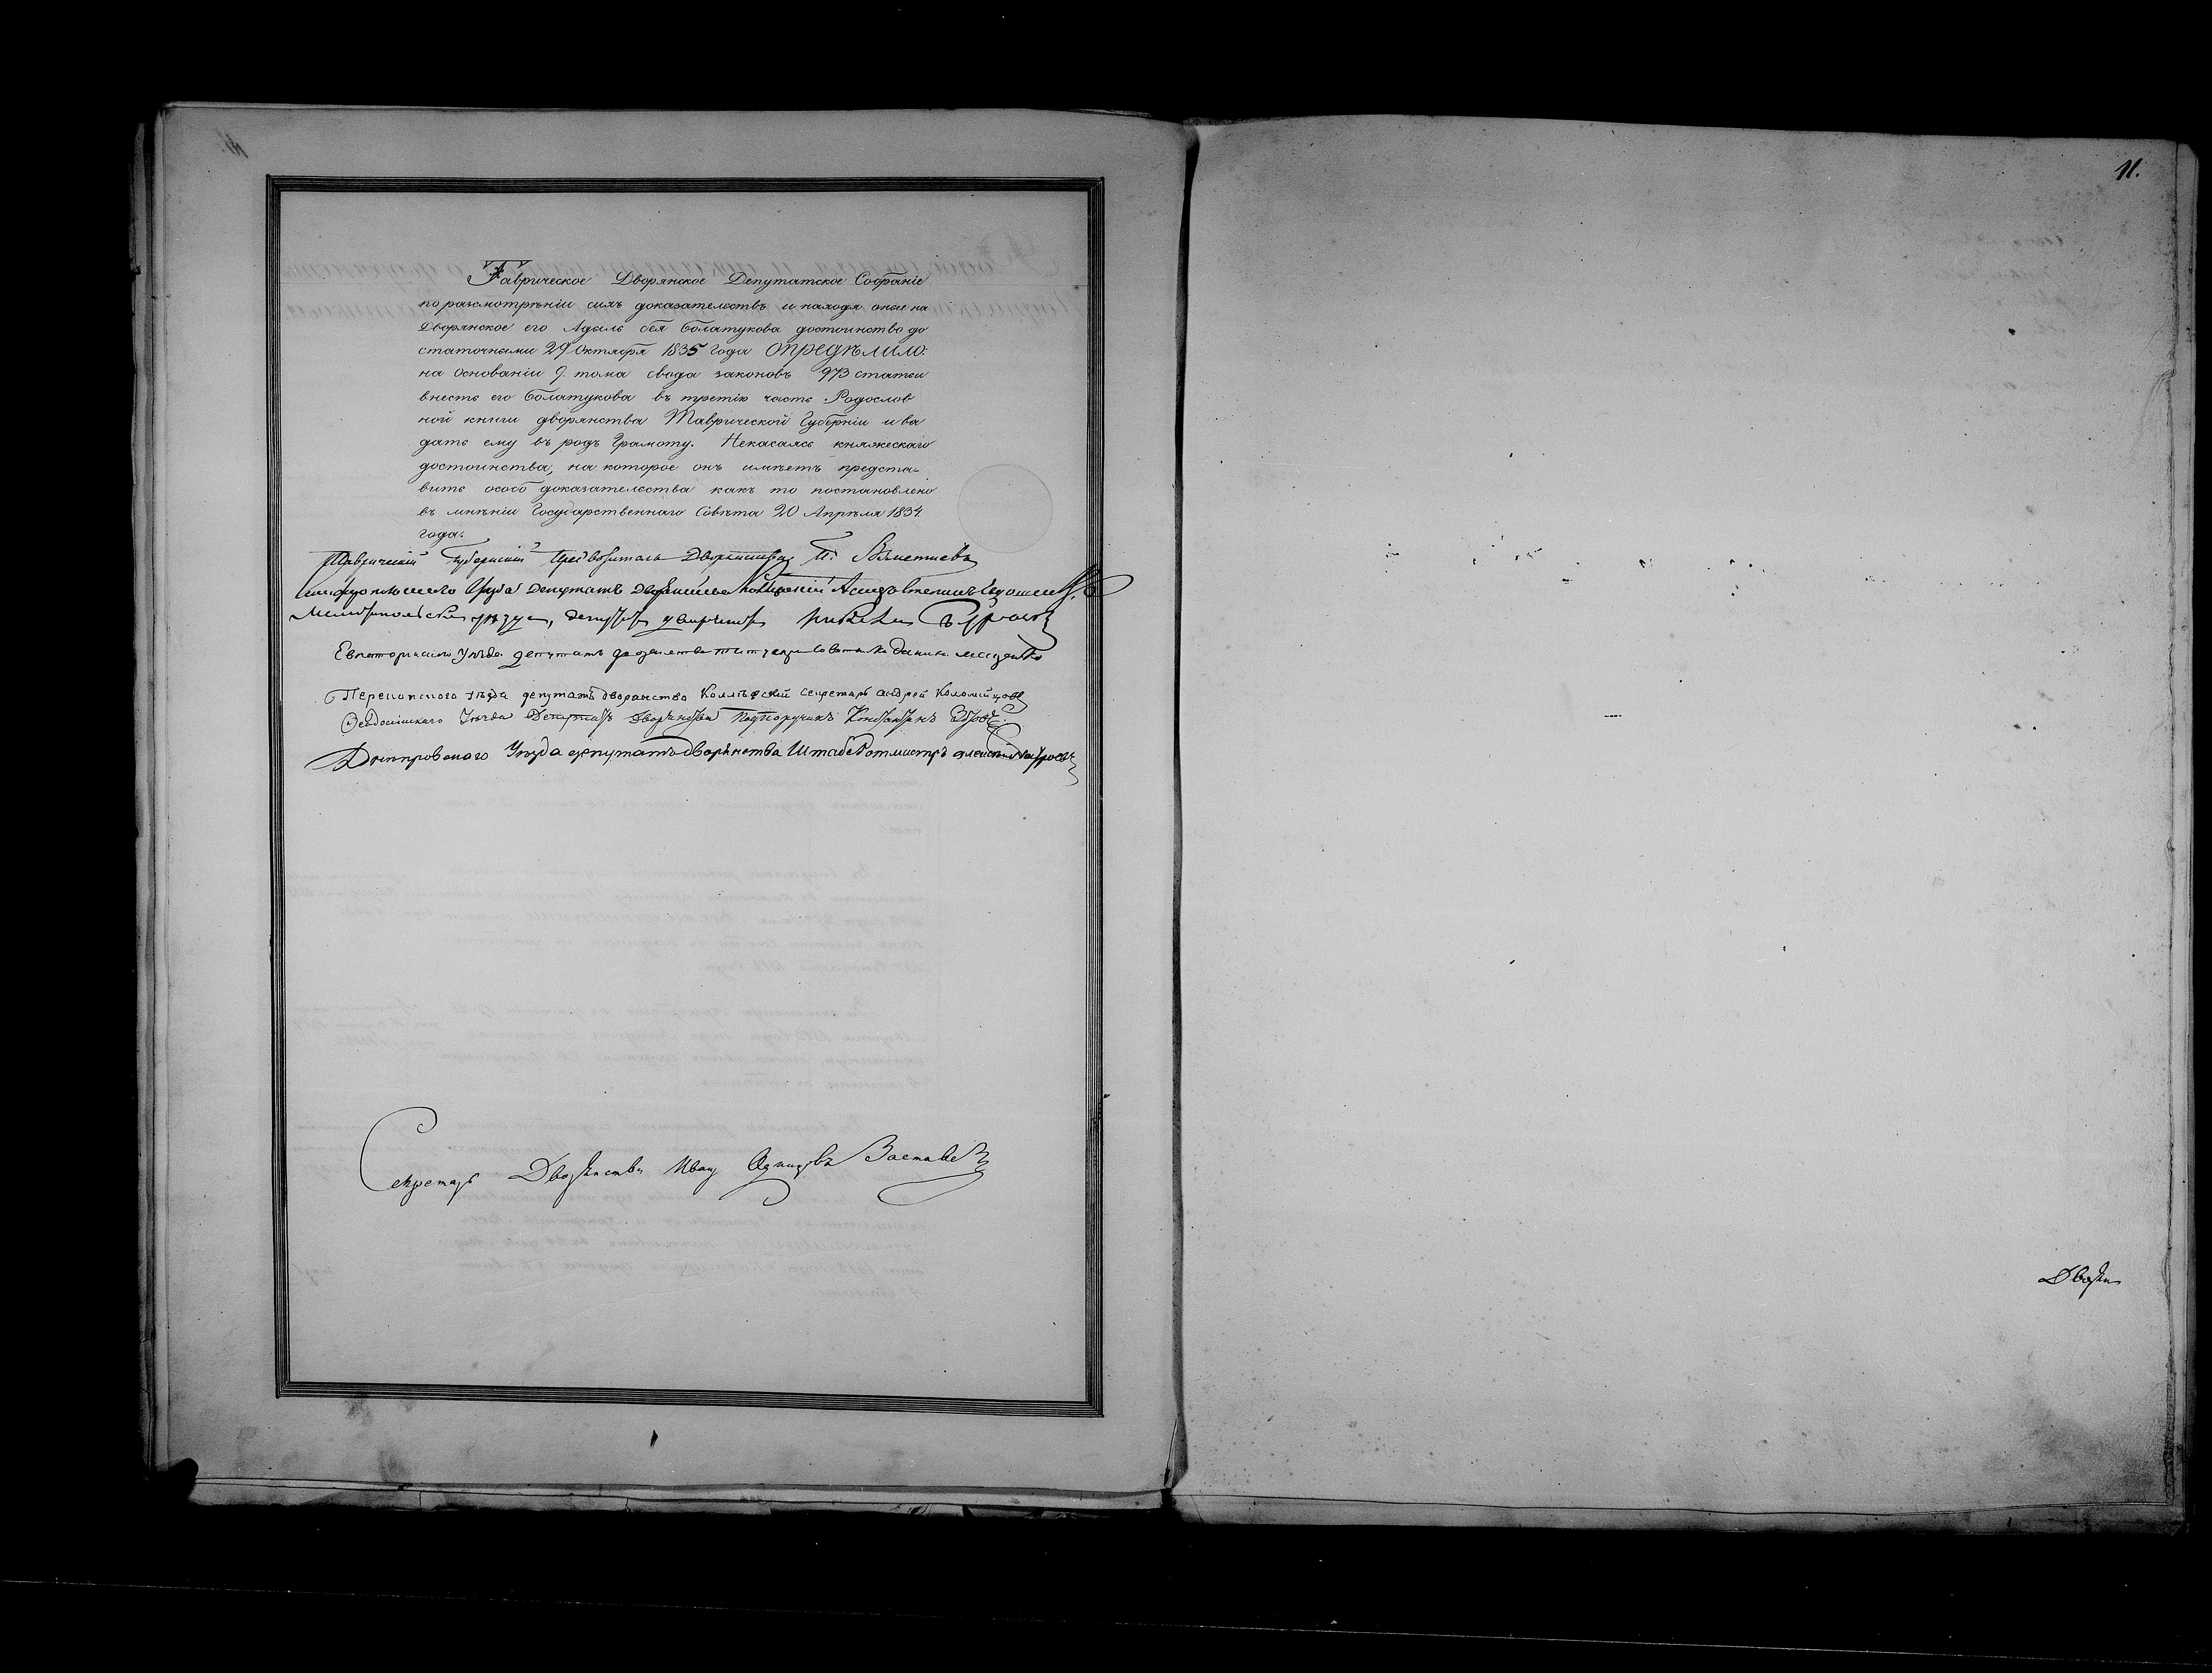 Таврическое Дворянское Депутатское Собраніе
по разсмотрѣніи сихъ доказательствъ и находя оные на
Дворянское его Адиль бея Болатукова достоинство до
статочными 29 Октября 1835 года опредѣлило:
на основаніи 9. тома свода законовъ 973 статьи
внесть его Болатукова въ третію часть Родослов
ной книги дворянства Таврической Губерніи и вы
дать ему въ родъ Грамоту. Некасаясь княжескаго
достоинства, на которое онъ имѣетъ предста=
вить особо доказательства какъ то постановлено
въ мнѣніи Государственнаго Совѣта 20 Апрѣля 1834.
года.
Таврическій Губернскій Предводитель Дворянства
Уѣзда Депутатъ Дворянства
Мелитопольскаго уѣзда, депутатъ дворянства
Евпаторійскаго Уѣзда депутатъ дворянства Титулярный Совѣтникъ
Перекопского уѣзда депутатъ дворянства Коллѣжскій секретарь андрей Коломійцовъ
Ѳеодосійскаго Уѣзда Депутатъ Дворянства Подпоручикъ Константинъ
Днѣпровскаго Уѣзда депутатъ дворянства Штабсъ Ротмистръ
Секретарь Дворянства Иванъ
11.
Дворян